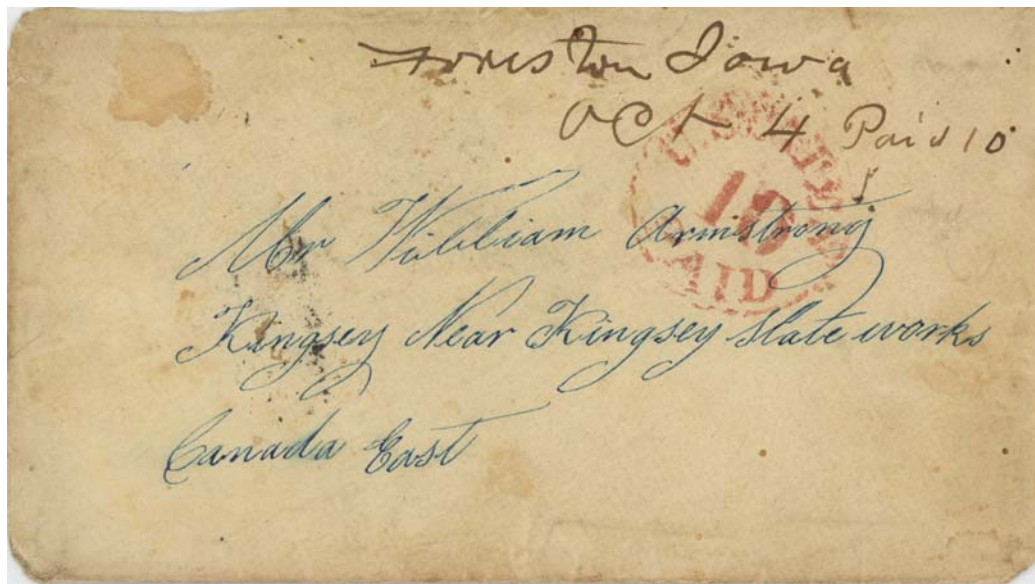 Foreston Iowa
Oct 4 Paid 10
U.STATES
10
PAID
Mr William Armstrong
Kingsey Near Kingsey Slate works
Canada East